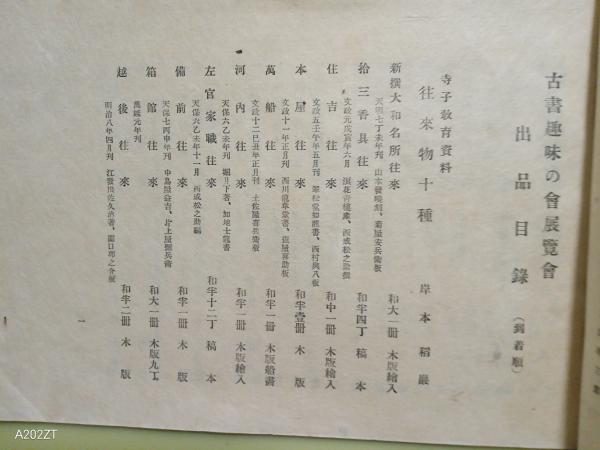 古書趣味の會展覽會
出品目錄 (到着順)
寺子敎育資料
往來物十種 岸本稻巖
新撰大和名所往來 和大一冊 木版繪入
天明七丁未年刊
拾三香具往來 和半四丁 稿本
文政元戊寅年六月
住吉往來 和中一冊 木版繪入
文政五壬午年五月刊
本屋往來 和半壹冊 木版
文政十一年正月刊
萬船往來 和半一冊 木版船畵
文政十二己丑年正月刊
河內往來 和半一冊 木版繪入
天保六乙未年刊
左官家職往來 和半十二丁 稿本
天保六乙未年十一月
備前往來 和半一冊 木版
天保七丙申年刊
箱館往來 和大一冊 木版九丁
萬延元年刊
越後往來 和半二冊 木版
明治八年四月刊
一
A202ZT